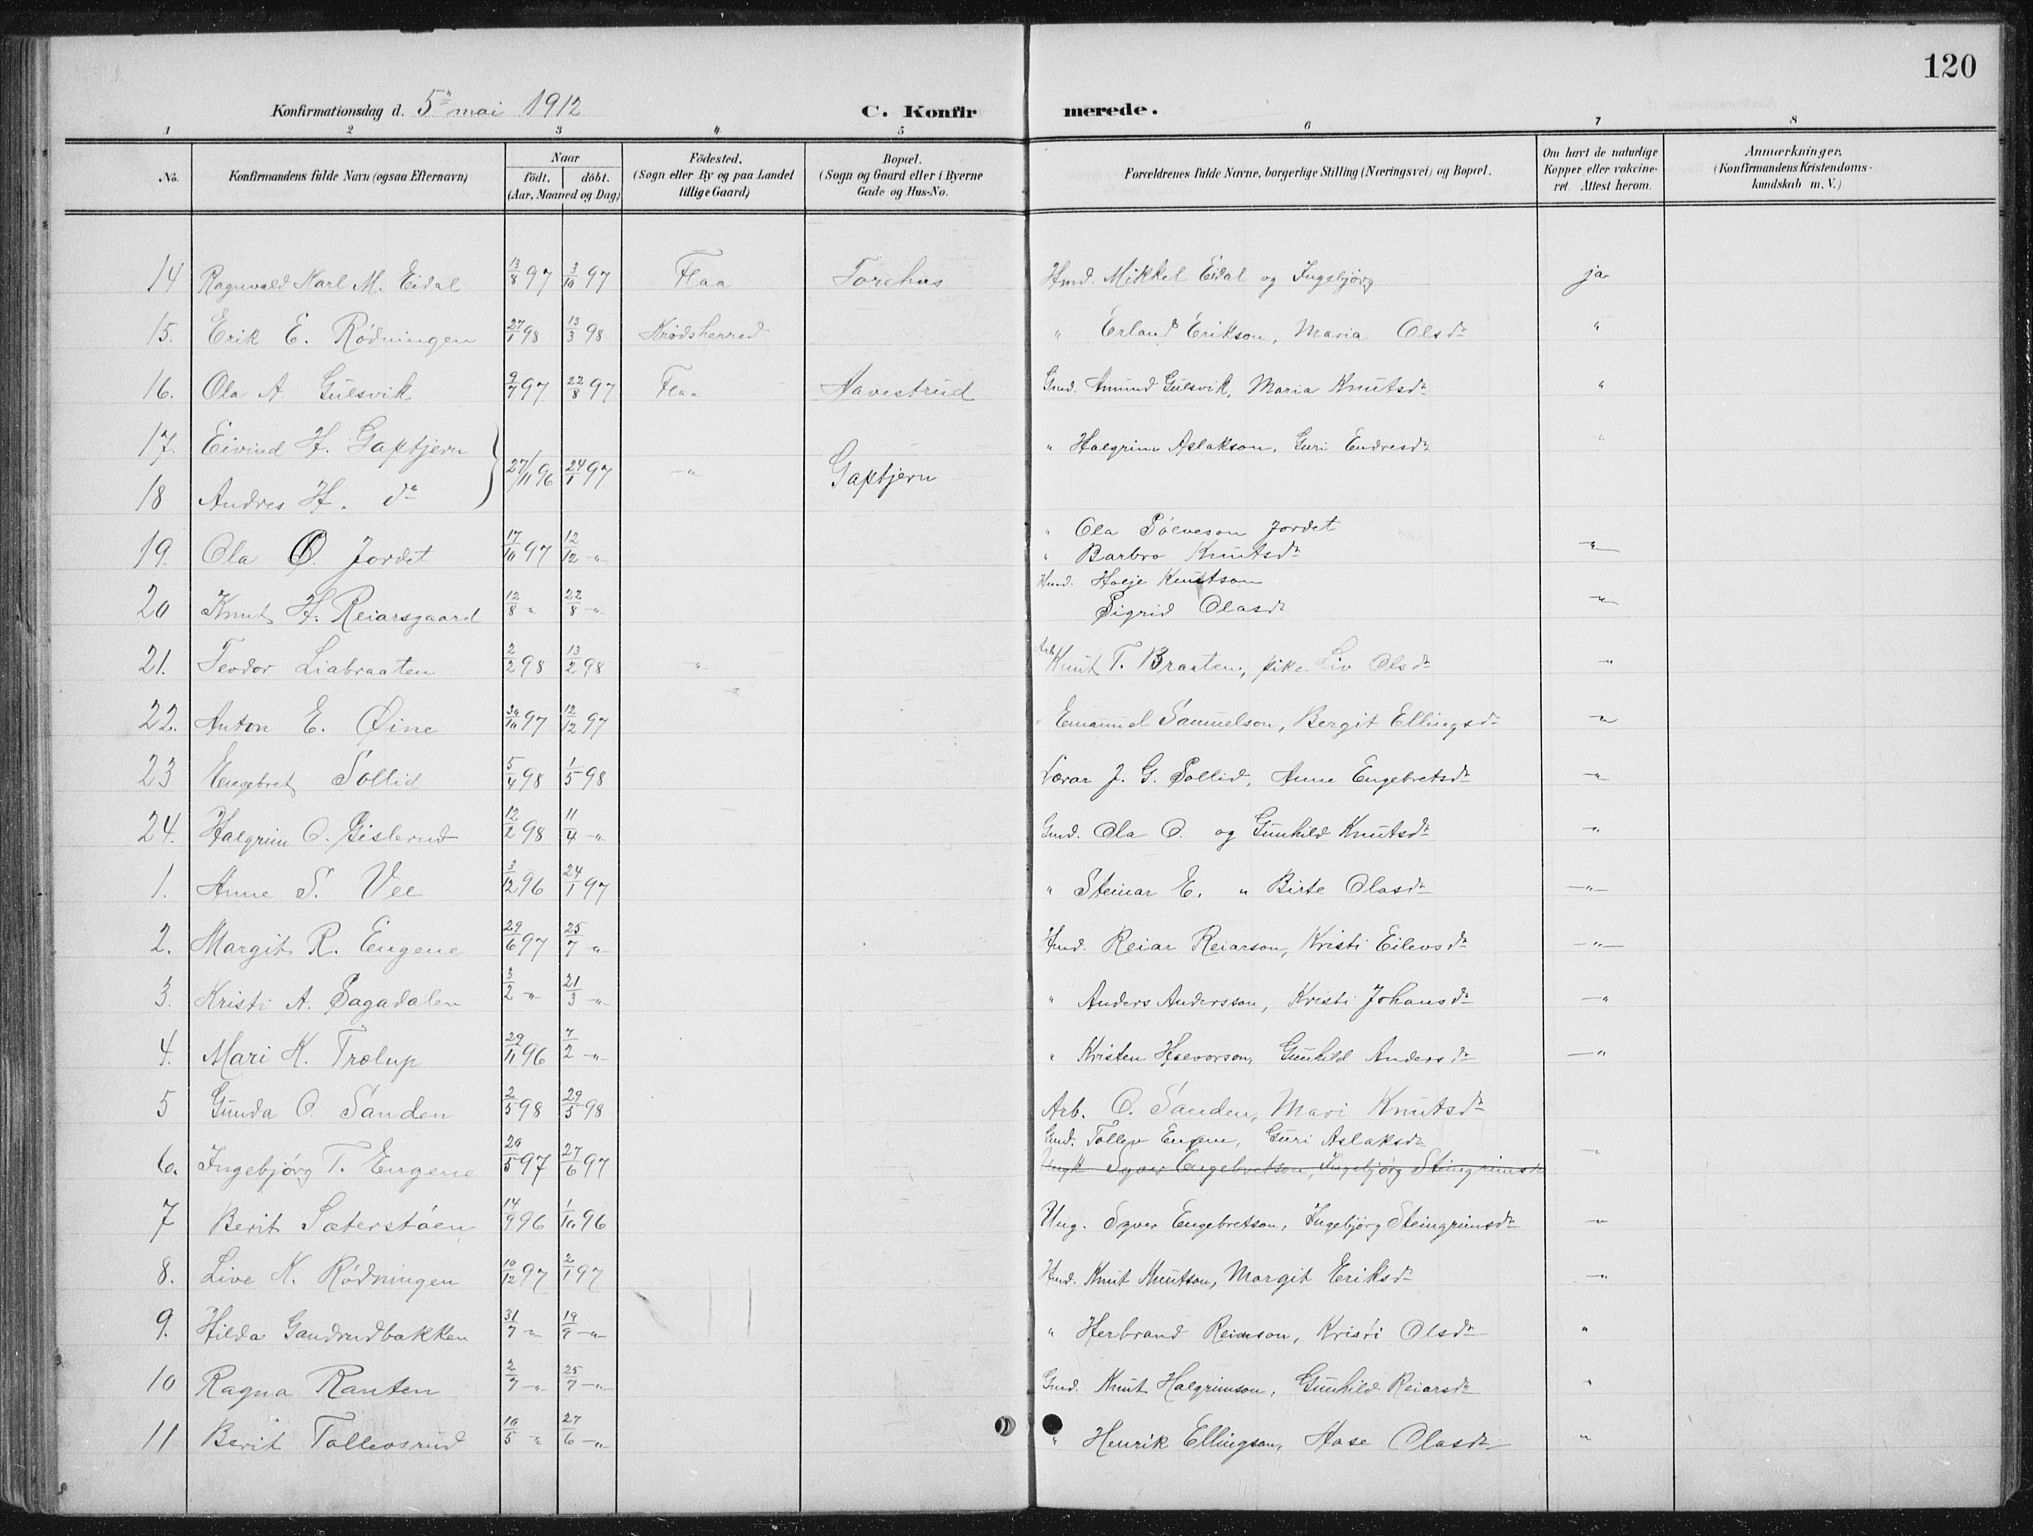 120
Konfirmationsdag d. 5te mai 1912 C. Konfirmerede.
1 2 3 4 5 6 7 8
No. Konfirmandens fulde Navn (ogsaa Efternavn) Naar født. døbt. (Aar, Maaned og Dag) Fødested. (Sogn eller By og paa Landet tillige Gaard) Bopæl. (Sogn og Gaard eller i Byerne Gade og Hus-No. Forældrenes fulde Navne, borgerlige Stilling (Næringsvei) og Bopæl. Om havt de naturlige Kopper eller vaccineret. Attest herom. Anmærkninger, (Konfirmandens Kristendomskundskab m. V.)
14 Ragnvald Karl M. Eidal 13/8 97 3/10 97 Flaa Torehus Hmd. Mikkel Eidal og Ingebjørg ja
15. Erik E. Rødningen 27/1 98 13/3 98 Krødsherred " Erland Erikson, Maria Olsdr "
16. Ola A. Gulsvik 9/7 97 22/8 97 Flaa Havestrud Gmd. Amund Gulsvik, Maria Knutsdr "
17. Eivind H. Gaptjern 27/11 96 24/1 97 -"- Gaptjern " Halgrim Aslakson, Guri Endresdr "
18 Andres H. do
19. Ola O. Jordet 17/10 97 12/12 -"- " Ola Sølveson Jordet
" Barbro Knutsdr -"-
20 Knut H. Reiarsgaard 12/8 " 22/8 -"- Hmd. Holje Knutson
Sigrid Olasdr -"-
21. Teodor Liabraaten 2/2 98 13/2 98 " Arb. Knut T. Braaten, pike Liv Olsdr "
22. Anton E. Øine 30/10 97 12/12 97 " Emanuel Samuelson, Bergit Ellingsdr -"-
23 Engebret Sollid 5/4 98 1/5 98 Lærar J. G. Sollid, Anne Engebretsdr -"-
24. Halgrim O. Gislerud 12/2 98 11/4 -"- Gmd. Ola O. og Gunhild Knutsdr -"-
1. Anne S. Vee 3/12 96 24/1 97 " Steinar E. " Birte Olasdr -"-
2. Margit R. Engene 29/6 97 25/7 -"- Hmd. Reiar Reiarson, Kristi Eilevsdr -"-
3. Kristi A. Sagadalen 3/2 -"- 21/3 -"- " Anders Andersson, Kristi Johansdr -"-
4. Mari K. Trolup 29/11 96 7/2 -"- " Kristen Halvorson, Gunhild Andersdr -"-
5 Gunda O. Sanden 2/5 98 29/5 98 Arb. O. Sanden, Mari Knutsdr
6. Ingebjørg T. Engene 20/5 97 27/6 97 Gmd. Tollev Engene, Guri Aslaksdr -"-
Ungk. Syver Engebretson, Ingebjørg Steingrimsdr
7 Berit Sæterstøen 14/9 96 1/10 96 Ung. Syver Engebretson, Ingebjørg Steingrimsdr -"-
8. Live K. Rødningen 10/12 97 2/1 97 Hmd. Knut Knutson, Margit Eriksdr -"-
9. Hilda Gandrudbakken 31/7 -"- 19/9 -"- " Herbrand Reiarson, Kristi Olsdr "
10 Ragna Ranten 2/7 -"- 25/7 -"- Gmd. Knut Halgrimson, Gunhild Reiarsdr "
11 Berit Tollevsrud 10/5 " 27/6 -"- " Henrik Ellingson, Aase Olasdr "